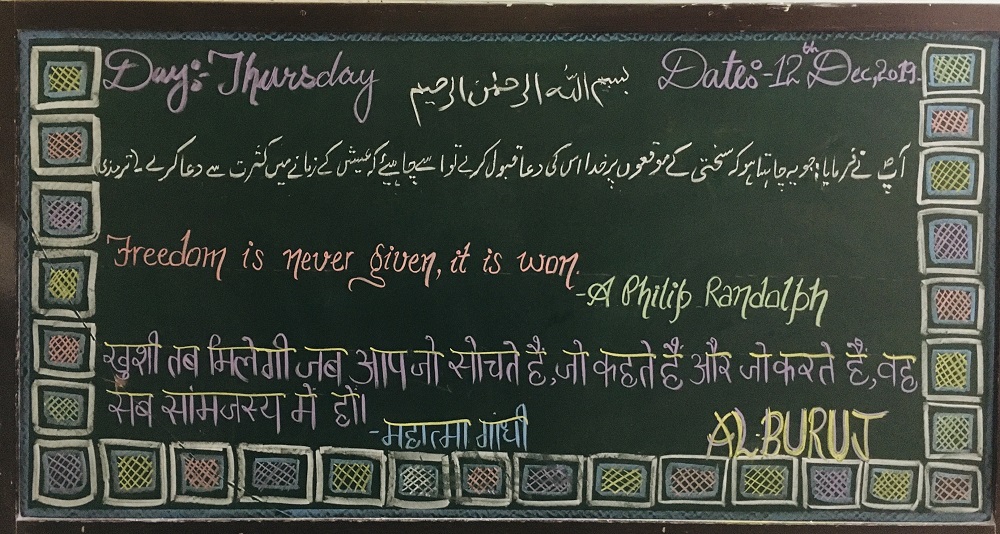 Day:- Thursday
بسم اللہ الرحمٰن الرحیم
Date:- 12th Dec, 2019.
آپؐ نے فرمایا: جو یہ چاہتا ہو کہ سختی کے موقعوں پر خدا اس کی دعا قبول کرے تو اسے چاہیئے کہ عیش کے زمانے میں کثرت سے دعا کرے۔ (ترمذی)
Freedom is never given, it is won.
-A Philip Randolph
खुशी तब मिलेगी जब आप जो सोचते हैं, जो कहते हैं और जो करते हैं, वह
सब सांमजस्य में हों।
-महात्मा गांधी
AL-BURUJ